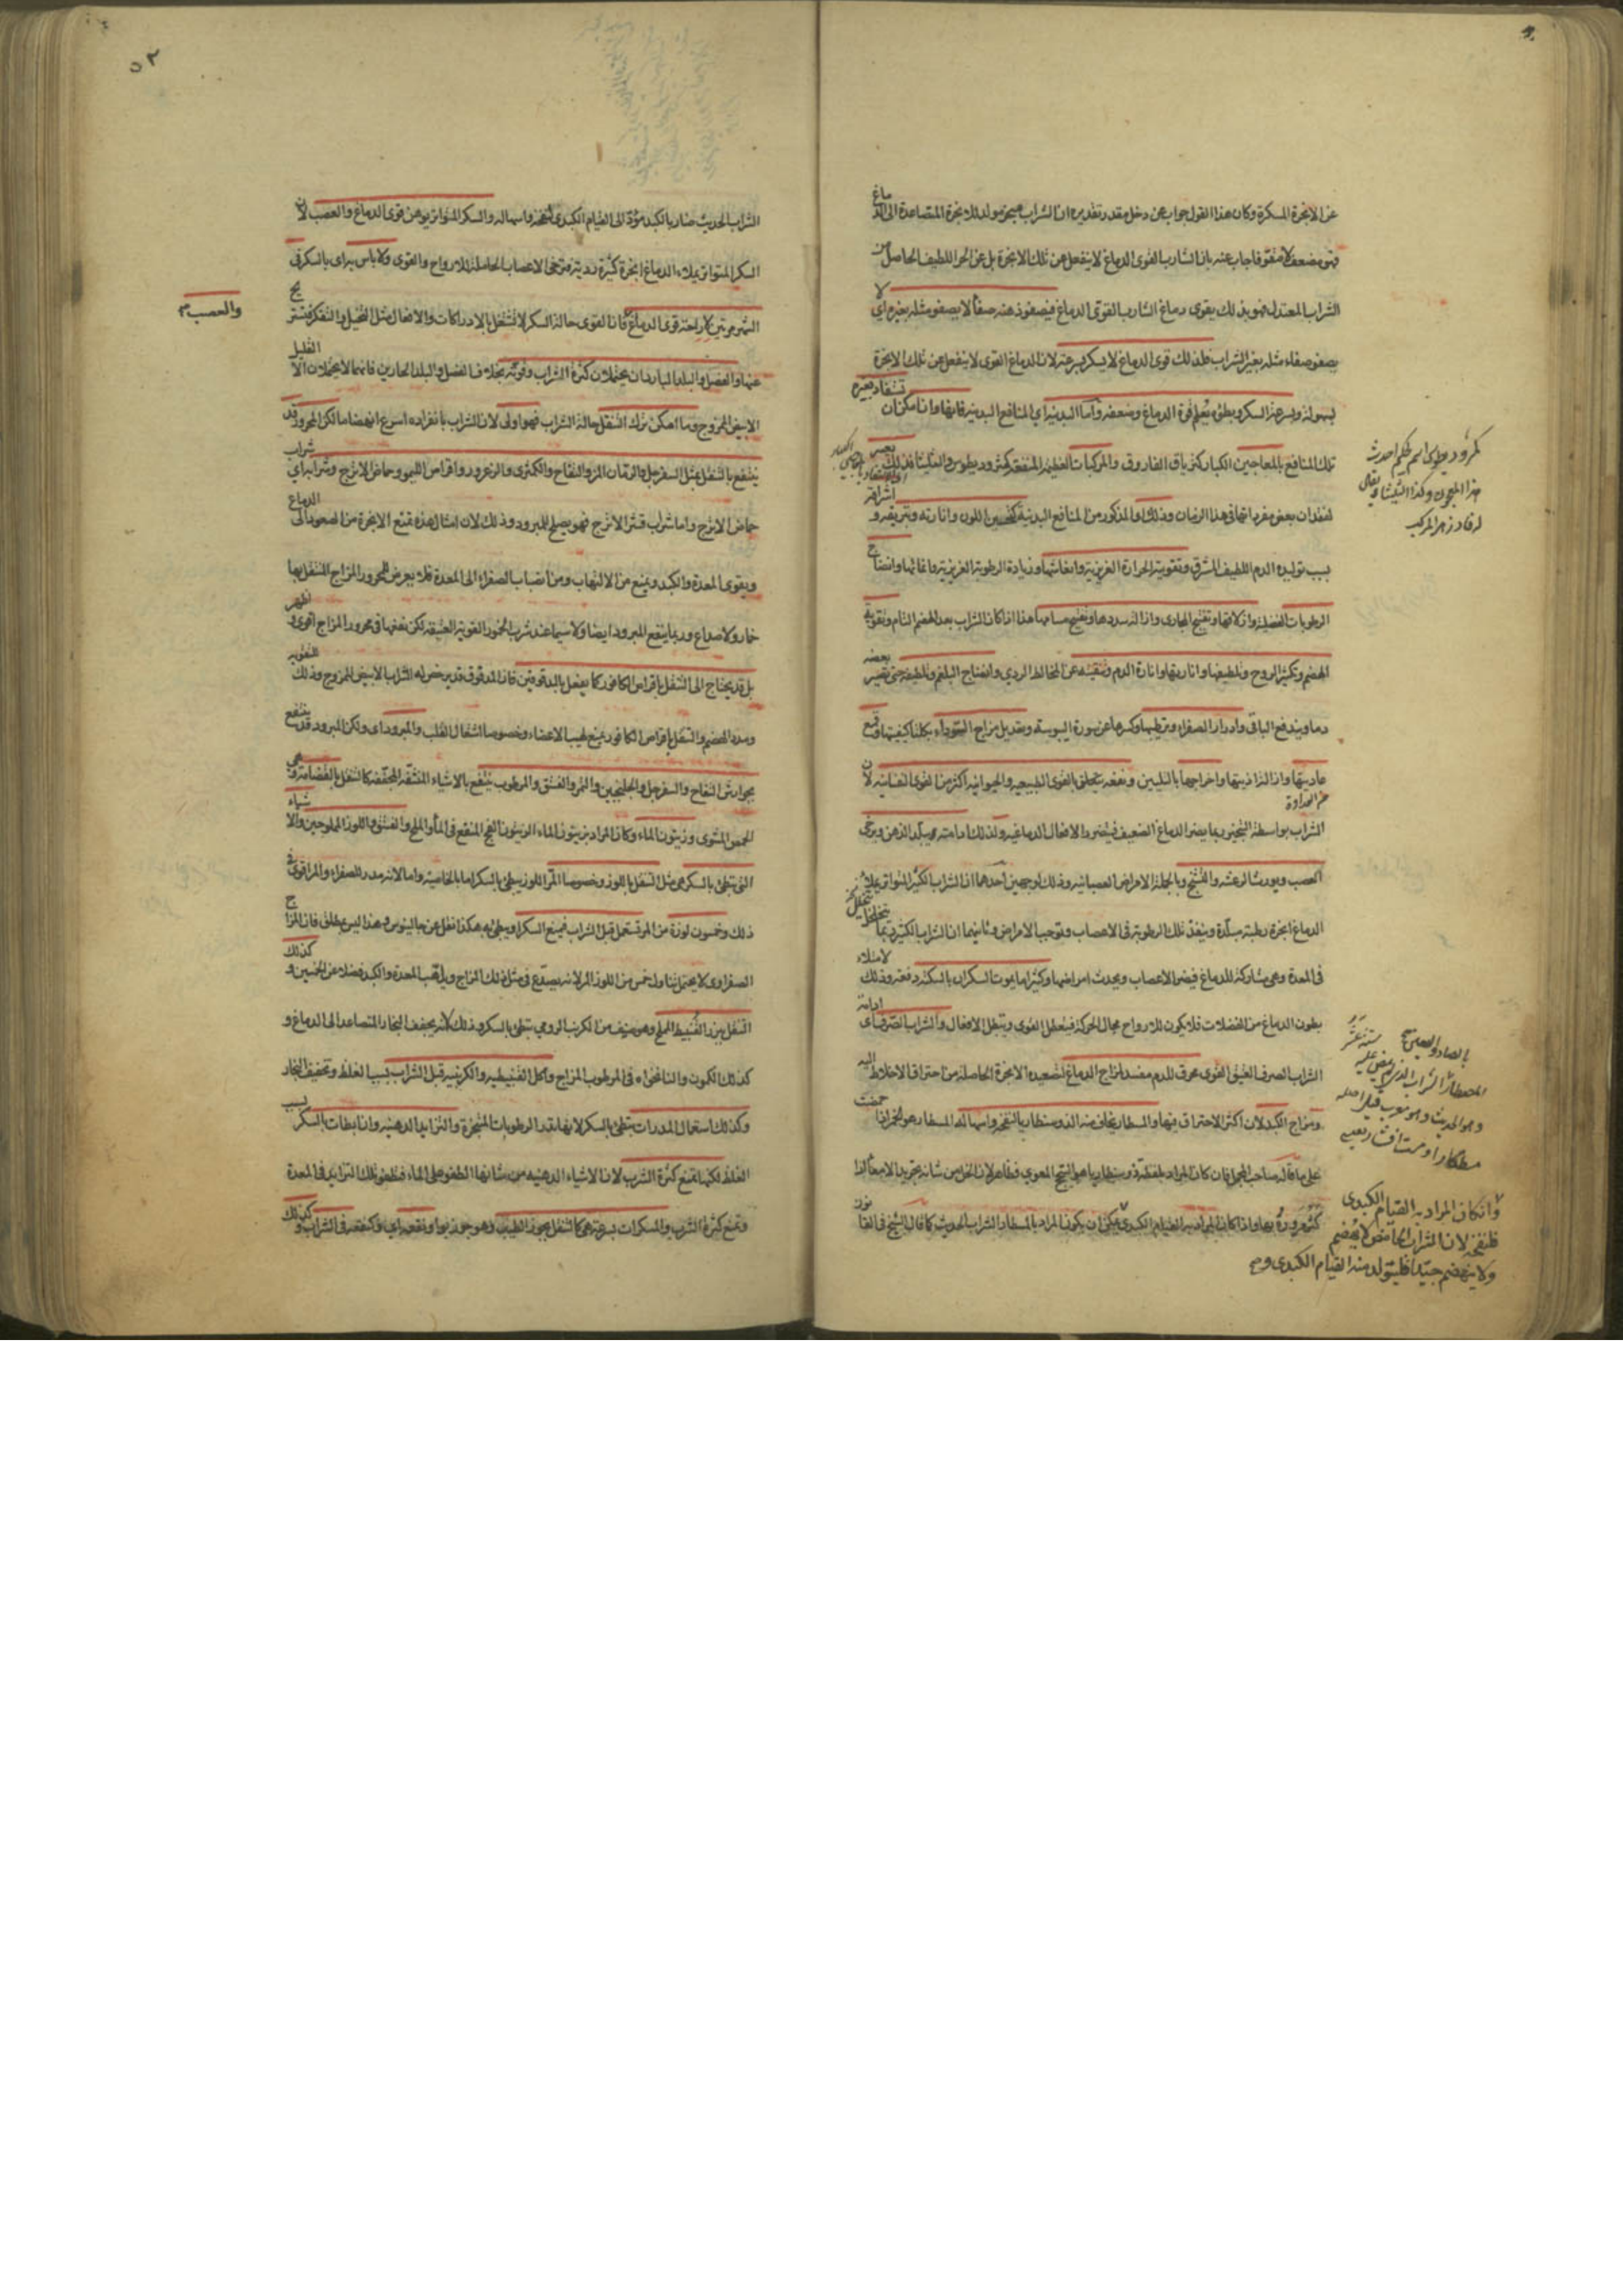 عن الابخرة المسكرة وكان هذا القول جواب عن دخل مقدر تقديره ان الشراب مبخر مولد للابخرة المتصاعدة الى الدماغ
فهو مضعف لا مقو فاجاب عنه بان الشارب القوى الدماغ لا ينفعل عن تلك الابخرة بل عن الحر اللطيف الحاصل من
الشراب المعتدل فهو بذلك يقوى دماغ الشارب القوى الدماغ فيصفو ذهنه صفاء لا يصفو مثله بغيره اى لا
يصفو صفاء مثله بغير الشراب فلذلك قوى الدماغ لا يسكر بسرعة لان الدماغ القوى لا ينفعل عن تلك الابخرة
بسهولة وبسرعة السكر وبطئه يعلم قوة الدماغ وضعفه واما البدنية اي المنافع البدنية فانها وان امكن ان تستفاد بغيره
تلك المنافع بالمعاجين الكبار كترياق الفاروق والمركبات العظيمة المنفعة كمثروديطوس
لفقدان بعض مفرداتها في هذا الزمان وذلك والمذكور من المنافع البدنية كتحسين اللون وانارته وتبريقه و اشراقه
بسبب توليده الدم اللطيف المشرق وتقوية الحرارة الغريزية وانعاشها وزيادة الرطوبة الغريزية وانمائها وانضاج
الرطوبات الفضلية وازلاقها وتفتيح المجارى وازالة سددها وتفتيح مسامها هذا اذا كان الشراب بعد الهضم التام وتقوية
الهضم وتكثير الروح وتلطيفها وانارتها وانارة الدم وتنقيته عن المخالط الردي وانضاج البلغم وتلطيفه حتى يصير بعضه
دما ويندفع الباقى وادرار الصفراء وترطيبها وكسرها عن سورة اليبوسة وتعديل مزاج السوداء بكلتا كيفيتها وقمع
عاديتها وازالة اذيتها واخراجها بالتليين ونفعه يتعلق بالقوى الطبيعية والحيوانية اكثر من القوى النفسانية لان
الشراب بواسطة التبخير ربما يضر الدماغ الضعيف فيتضرر الافعال الدماغية ولذلك ادامته يبلد الذهن ويرخى
العصب ويورث الرعشة والتشنج وبالجملة الامراض العصبانية وذلك لوجهين احدهما ان الشراب الكثير المتواتر يملأ
الدماغ ابخرة رطبة مبلة وينفذ تلك الرطوبة فى الاعصاب وتوجب الامراض وثانيهما ان الشراب الكثير ربما يتخلل
فى المعدة وهى مشاركة للدماغ فيضر الاعصاب ويحدث امراضها وكثيرا ما يموت السكران بالسكتة دفعة وذلك لامتلاء
بطون الدماغ من الفضلات فلا يكون للارواح مجال الحركة فيتعطل القوى وتبطل الافعال والشراب الصرف اى ادامة
الشراب الصرف العتيق القوى محرق للدم مفسد لمزاج الدماغ لتصعيده الابخرة الحاصلة من احتراق الاخلاط اليه
ومزاج الكبد لان اكثر الاحتراق فيها والمسطار يخاف منه الذوسنطاريا لنفخه واسهاله المسطار هو الخمر اذا حمضت
على ما قاله صاحب المجمل فان كان المراد بلفظة ذوسنطاريا هو السحج المعوى فظاهر لان الخل من شانه تجريد الامعاء اذا
كثر مروره بها واذا كان المراد به القيام الكبدى يمكن ان يكون المراد بالمسطار الشراب الحديث كما قال الشيخ فى القانون
مثروديطوس اسم حكيم احدث
هذا المعجون وكذا
بالصاد والسين
المصطار الشراب الذى لم يمض عليه ستة اشهر
وهو الحديث وهو معرب قيل اصله
وان كان المراد به القيام الكبدى
فلنفخه لان الشراب الحامض لا يهضم
ولا ينهضم جيدا فليتولد منه القيام الكبدى
٥٢
الشراب الحديث ضار بالكبد مؤد الى القيام الكبدى لنفخه واسهاله والسكر المتواتر يوهن قوى الدماغ والعصب لان
السكر المتواتر يملاء الدماغ ابخرة كثيرة ردية مرخى الاعصاب الحاملة للارواح والقوى ولا باس براى بالسكر فى
والعصب
الشهر مرتين لاراحته قوى الدماغ فان القوى حالة السكر لا تشتغل بالادراكات والافعال مثل التخيل والتفكر فتستريح
عنها والفصل والبلد الباردان يحتملان كثرة الشراب وقوته بخلاف الفصل والبلد الحارين فانهما لا يحتملان الا القليل
الابيض الممزوج وما امكن ترك التنقل حالة الشراب فهو اولى لان الشراب بانفراده اسرع انهضاما لكن المحرور قد
ينتفع بالتنقل بمثل السفرجل والرمان المز والتفاح والكمثرى والزعرور واقراص الليمو وحماض الاترج وشرابه اى شراب
حماض الاترج واما شراب قشر الاترج فهو يصلح للمبرود وذلك لان امثال هذه تمنع الابخرة من الصعود الى الدماغ
ويقوى المعدة والكبد ويمنع من الالتهاب ومن انصباب الصفراء الى المعدة فلا يعرض للمحرور المزاج المتنقل بها
خمار ولا صداع وربما ينتفع المبرود ايضا ولا سيما عند شرب الخمور القوية العتيقة لكن نفعها فى محرور المزاج اقوى و اظهر
بل قد يحتاج الى التنقل باقراص الكافور كما يفعل بالمدقوقين فان المدقوق قد يرخص له الشراب الابيض الممزوج وذلك للتقوية
وسدد الهضم والتنقل باقراص الكافور يمنع لهيب الاعضاء وخصوصا اشتعال القلب والمبرود اى ولكن المبرود قد ينتفع
بجوارش التفاح والسفرجل والجلنجبين والتمر والفستق والمرطوب ينتفع بالاشياء المنشفة المجففة كالتنقل بالقضامة وهى
الحمص المشوى وزيتون الماء وكان المراد بزيتون الماء الزيتون الفج المنقع فى الماء والملح والفستق واللوز المملوحين والاشياء
التى تبطئ بالسكر هى مثل التنقل باللوز وخصوصا المر اللوز يبطئ بالسكر اما بالخاصية واما لانه مدر للصفراء والمر اقوى فى
ذلك وخمسون لوزة من المر تستعمل قبل الشراب فيمنع السكر او يبطئ به هكذا نقل عن جالينوس وهذا ليس بمطلق فان المزاج
الصفراوى لا يحتمل تناول خمس من اللوز المر لانه يصدع فى مثل ذلك المزاج ويلهب المعدة والكبد فضلا عن الخمسين و كذلك
التنقل ببزر القنبيط المملح وهو صنف من الكرنب الرومى يبطئ بالسكر وذلك لانه يجفف البخار المتصاعد الى الدماغ و
كذلك الكمون والنانخواه فى المرطوب المزاج واكل القنبيطية والكرنبية قبل الشراب بسبب الغلظ وتجفيف البخار
وكذلك استعمال المدرات تبطئ بالسكر لانها تدر الرطوبات المتبخرة والثرايد الدهنية وانا بطات بالسكر بسبب
الغلظ لكنها تمنع كثرة الشرب لان الاشياء الدهنية من شانها الطفو على الماء فتطفو تلك الثرايد فى المعدة
وتمنع كثرة الشرب والمسكرات بسرعة هى كالتنقل بجوز الطيب وهو جوز بوا ونقعه اى وكنقعه فى الشراب و كذلك